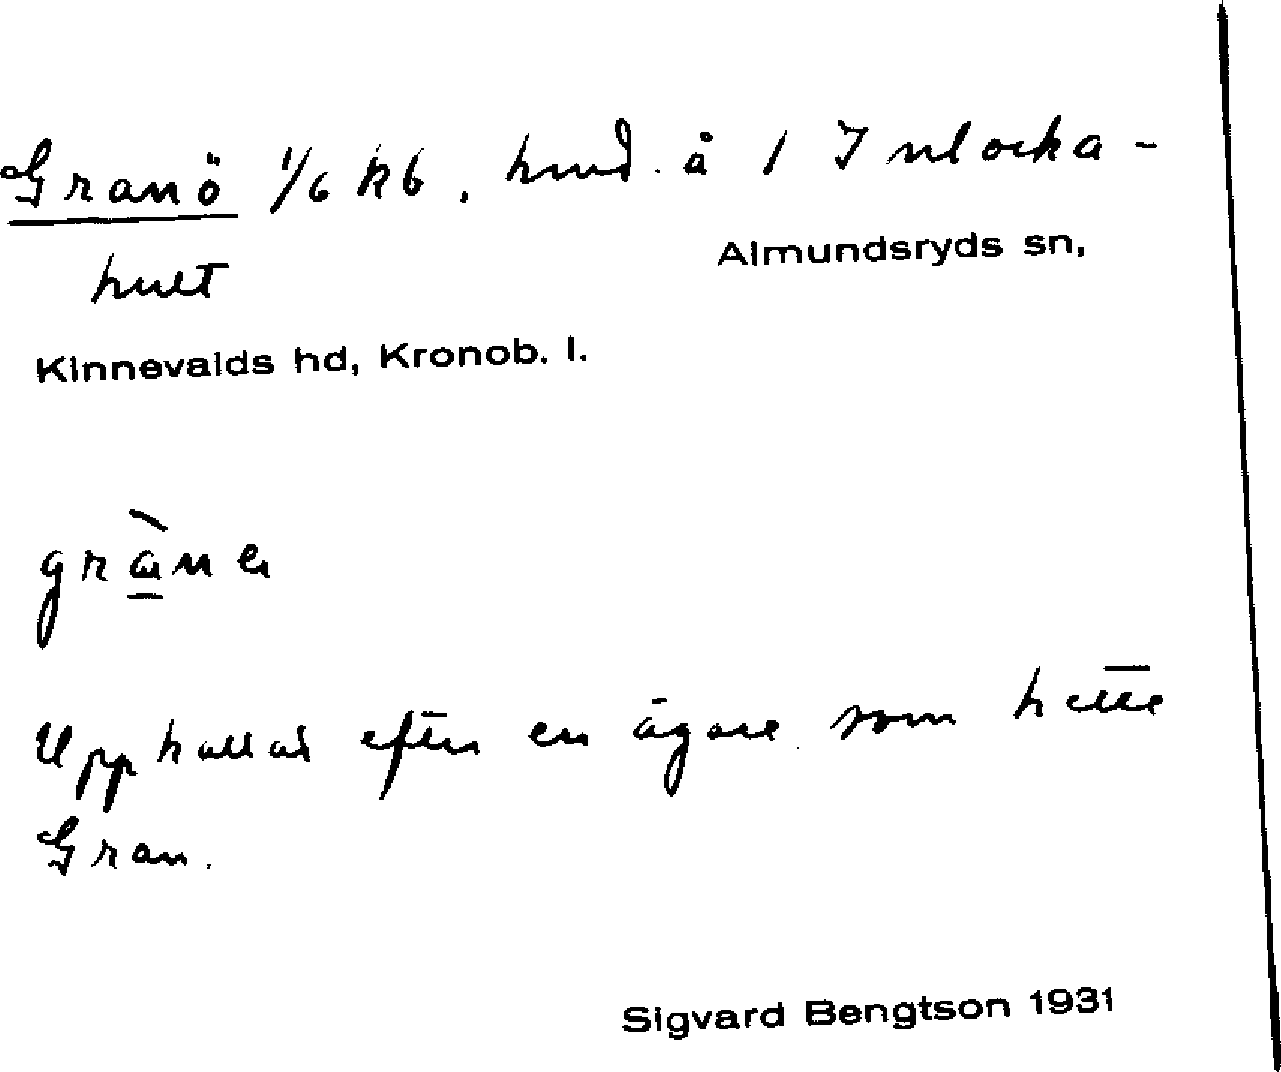 Granö 1/6 kb. hmd. å 1 Inlocka-
Almundsryds sn,
hult
Kinnevalds hd, Kronob. l.
gràne
Uppkallad efter en ägare som hette
Gran.
Sigvard Bengtson 1931